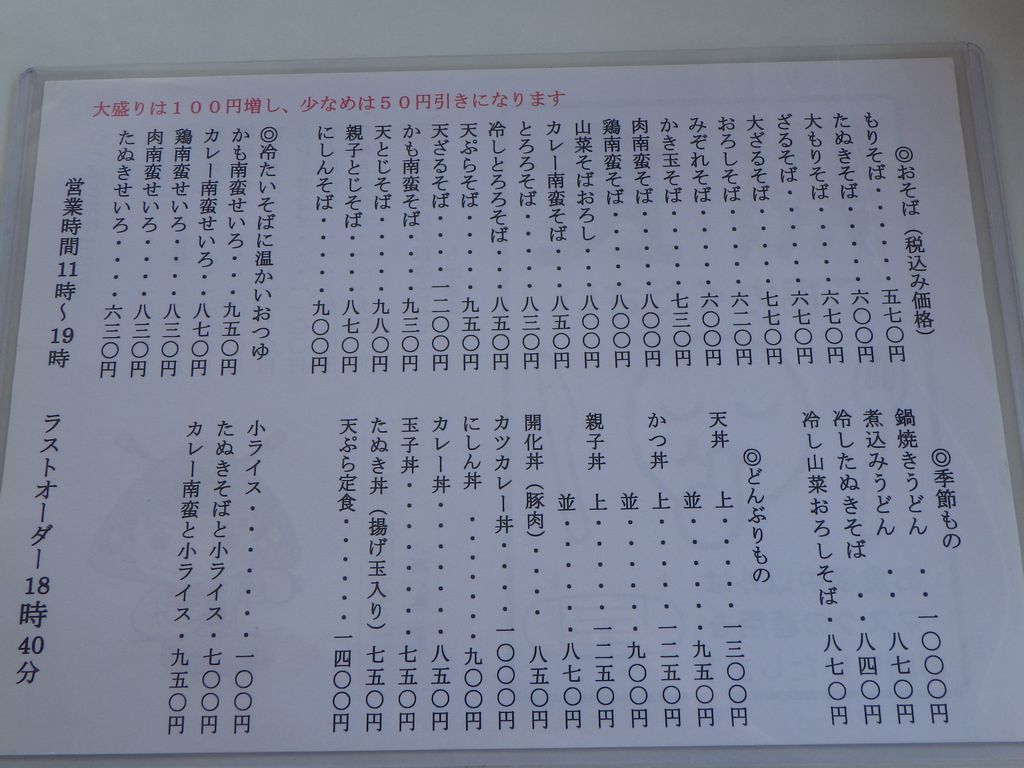 大盛りは１００円増し、少なめは５０円引きになります
◎おそば（税込み価格）
もりそば・・・・・五七〇円
たぬきそば・・・・六〇〇円
大もりそば・・・・六七〇円
ざるそば・・・・・六七〇円
大ざるそば・・・・七七〇円
おろしそば・・・・六二〇円
みぞれそば・・・・六〇〇円
かき玉そば・・・・七三〇円
肉南蛮そば・・・・八〇〇円
鶏南蛮そば・・・・八〇〇円
山菜そばおろし・・八〇〇円
カレー南蛮そば・・八五〇円
とろろそば・・・・八三〇円
冷しとろろそば・・八五〇円
天ぷらそば・・・・九五〇円
天ざるそば・・・一二〇〇円
かも南蛮そば・・・九三〇円
天とじそば・・・・九八〇円
親子とじそば・・・八七〇円
にしんそば・・・・九〇〇円
◎冷たいそばに温かいおつゆ
かも南蛮せいろ・・・九五〇円
カレー南蛮せいろ・・八七〇円
鶏南蛮せいろ・・・・八三〇円
肉南蛮せいろ・・・・八三〇円
たぬきせいろ・・・・六三〇円
営業時間11時～19時
◎季節もの
鍋焼きうどん・・一〇〇〇円
煮込みうどん・・・八七〇円
冷したぬきそば・・八四〇円
冷し山菜おろしそば・八七〇円
◎どんぶりもの
天丼 上・・・・一三〇〇円
並・・・・・九五〇円
かつ丼 上・・・・一二五〇円
並・・・・・九〇〇円
親子丼 上・・・・一二五〇円
並・・・・・八七〇円
開化丼（豚肉）・・・八五〇円
カツカレー丼・・・一〇〇〇円
にしん丼・・・・・九〇〇円
カレー丼・・・・・八五〇円
玉子丼・・・・・・七五〇円
たぬき丼（揚げ玉入り）七五〇円
天ぷら定食・・・・・一四〇〇円
小ライス・・・・・・一〇〇円
たぬきそばと小ライス・七〇〇円
カレー南蛮と小ライス・九五〇円
ラストオーダー18時40分